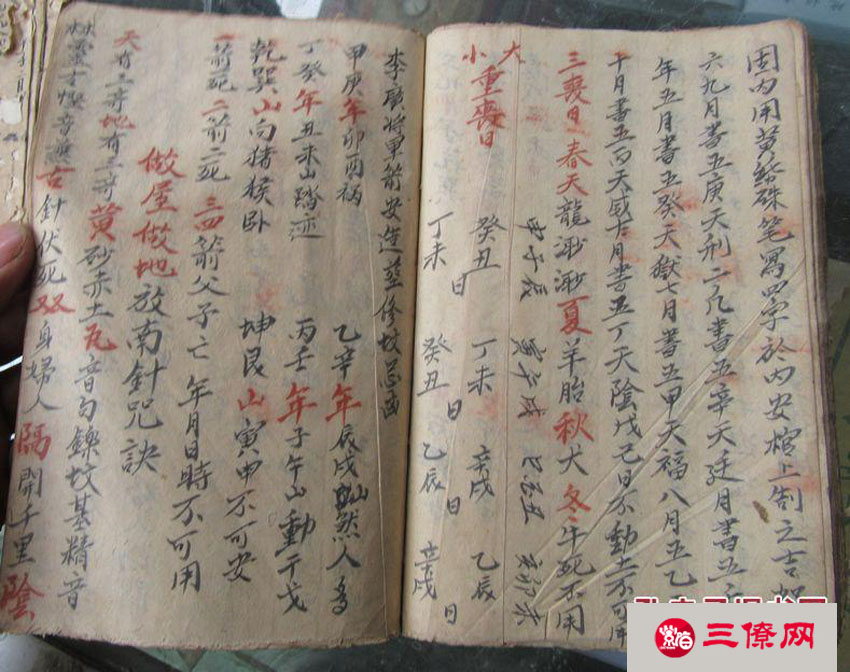 固内用黄紙硃笔寫四字於内安棺上制之吉
六九月書五庚天刑二几書五辛天廷月書五
年五月書五癸天獄七月書五甲天福八月五乙
十月書五丙天威十月書五丁天陰戊己日不動土不可用
三喪日春天龍 夏羊胎秋犬冬牛死不用
申子辰 寅午戌 巳酉丑 亥卯未
大小重喪日
癸丑 丁未 辛戌 乙辰
丁未日 癸丑日 乙辰日 辛戌日
李廣將軍箭安造葬修坟忌酉
甲庚年卯酉 乙辛年辰戌山 人
丁癸年丑未山踏 丙壬年子午山動干戈
乾巽山向猪猴卧 坤艮山寅申不可安
一箭死二箭二死三四箭父子亡年月日時不可用
做屋做地放南針咒訣
天有三奇地有三奇黄砂赤土瓦音 坟基精音
灵 古針伏死双身婦人隔開千里陰
三僚网